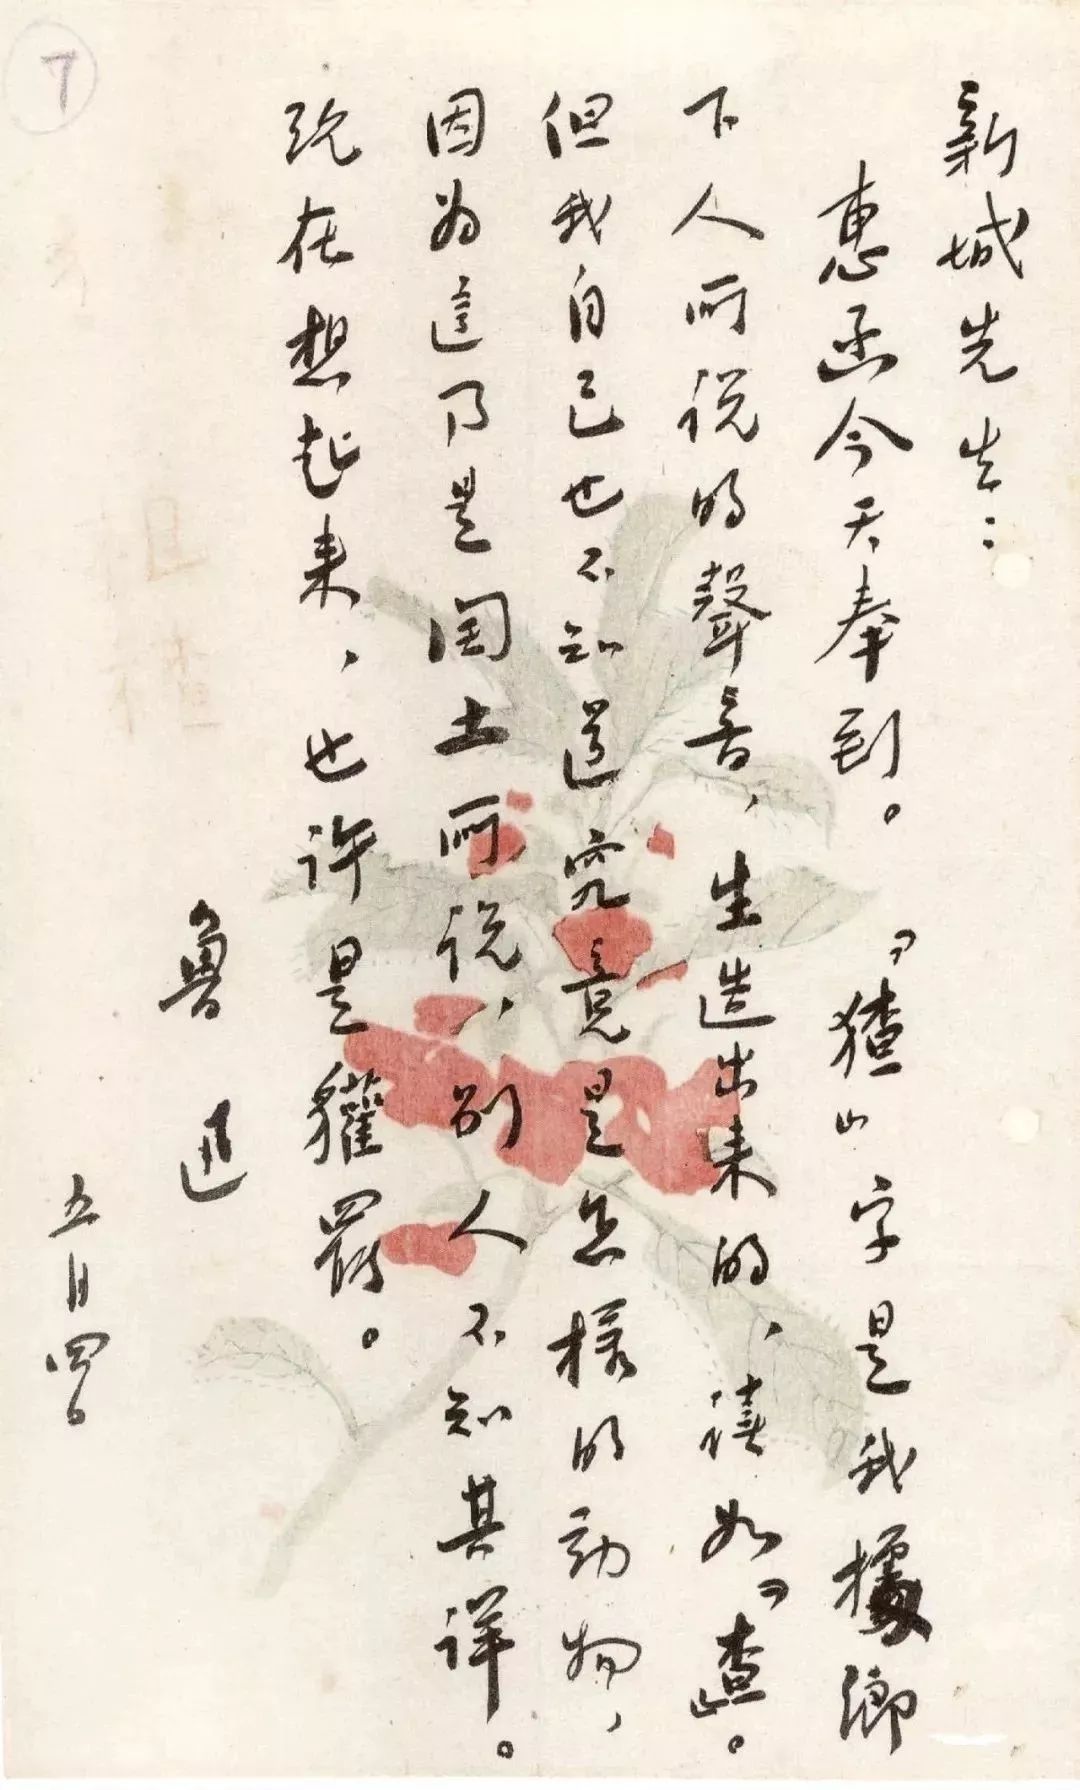 新城先生：
惠函今天奉到。『猹』字是我據鄉
下人所说的聲音，生造出来的，讀如『查』。
但我自己也不知道究竟是怎樣的動物，
因为這乃是闰土所说，别人不知其详。
现在想起来，也许是獾罢。
鲁迅
五月四日
7